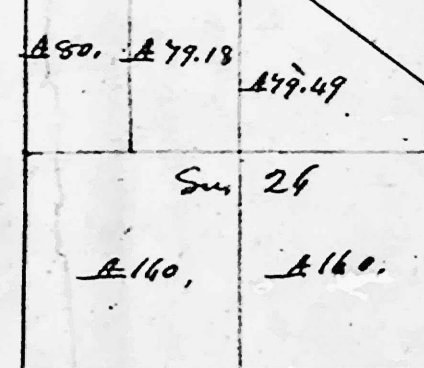 A 80. A 79.18
A 79.49
Sec 26
A 160, A 160.